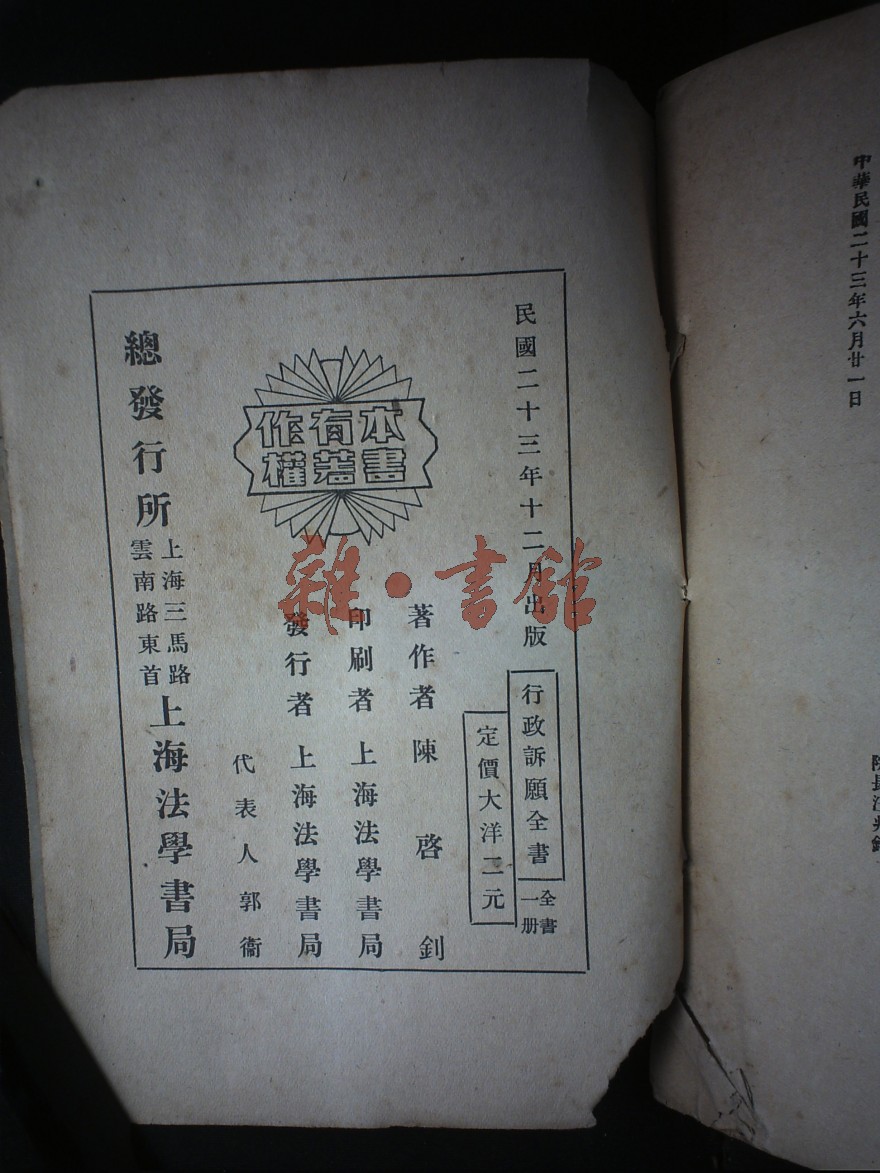 中華民國二十三年六月廿一日
民國二十三年十二月出版
行政訴願全書
全書
一册
定價大洋二元
著作者 陳啓釗
印刷者 上海法學書局
發行者 上海法學書局
代表人郭衞
本書
有著
作權
總發行所
上海三馬路
雲南路東首
上海法學書局
雜·書館